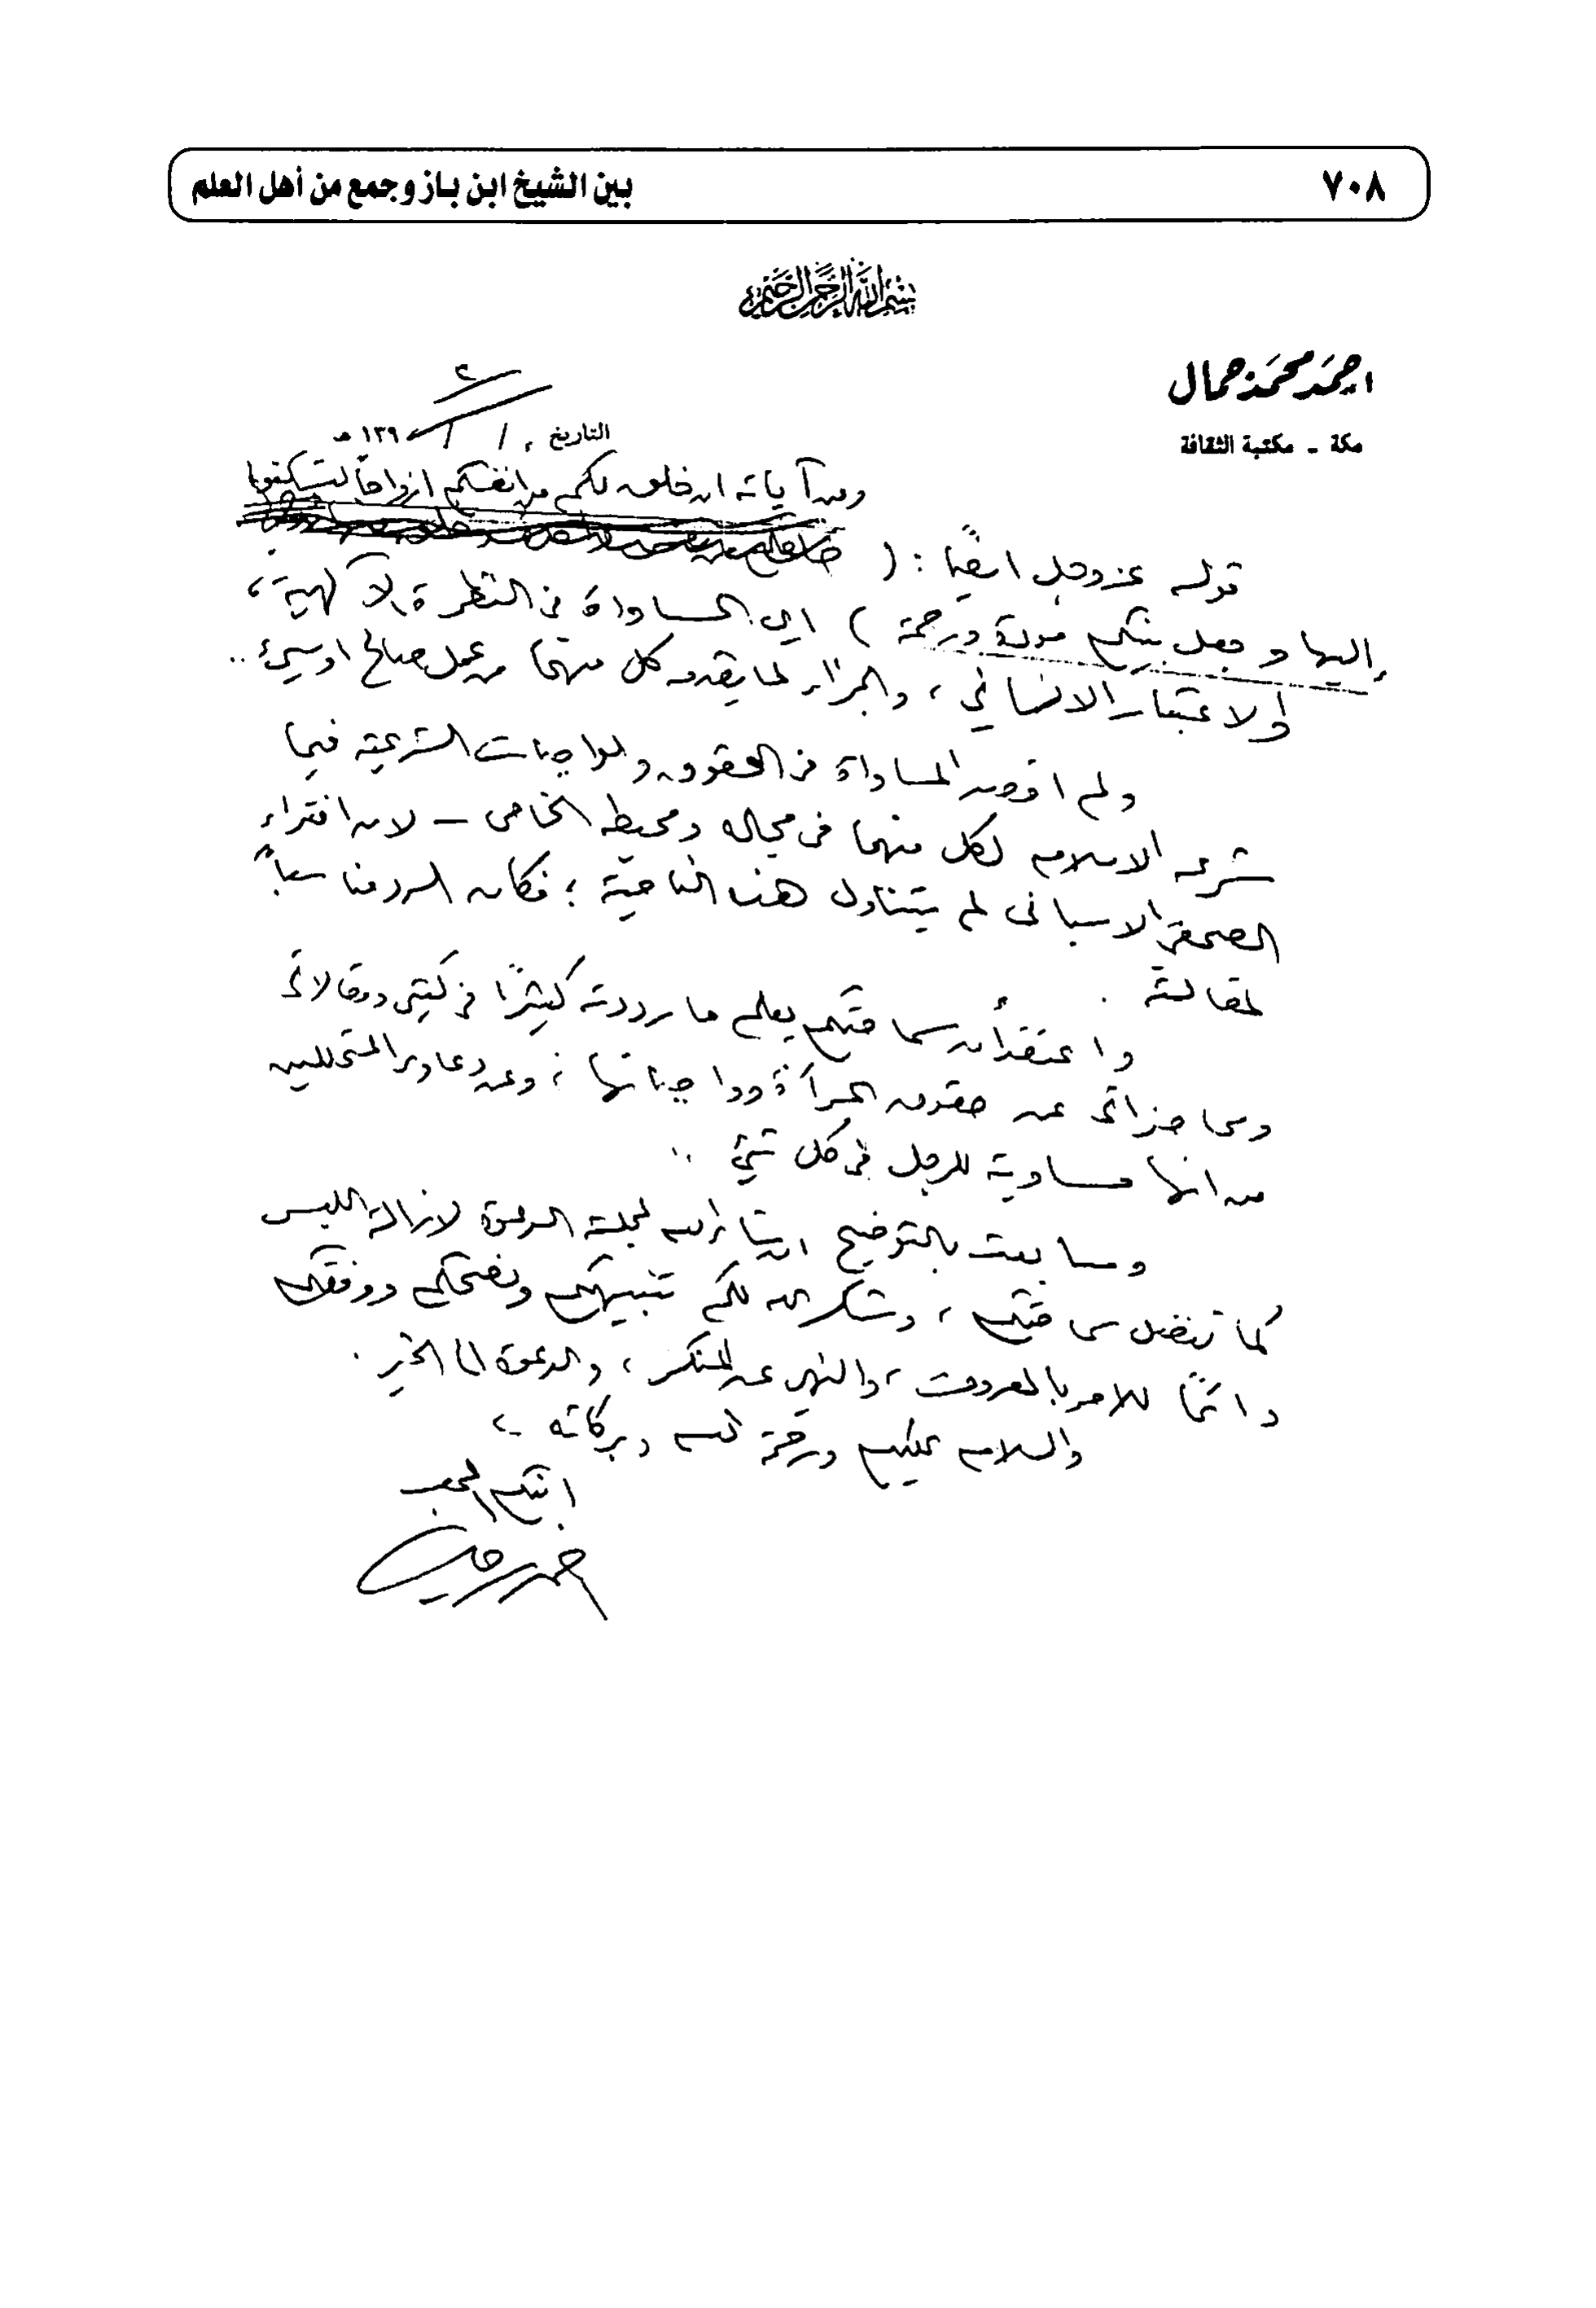 ٧٠٨
بين الشيخ ابن باز وجمع من أهل العلم
بسم الله الرحمن الرحيم
احمد محمد جمال
مكة - مكتبة الثقافة
٢
التاريخ / / ١٣٩ هـ
ومن آياته ان خلق لكم من انفسكم ازواجاً لتسكنوا
قوله عز وجل ايضًا : (
إليها وجعل بينكم مودة ورحمة ) اي المساواة في النظرة الآلهية ،
والاعتبار الانساني ، والجزاء لما يقدمه كل منهما من عمل صالح او سيئ ..
ولم اقصد المساواة في الحقوق والواجبات الشرعية فيما
شرعه الاسلام لكل منهما في مجاله ومحيطه الخاص - لان افتراء
الصحفي الاسباني لم يتناول هذه الناحية ؛ فكان الرد مناسباً
لمقالته .
واعتقد أن سماحتكم يعلم ما رددته كثيرًا في كتبي ومقالاتي
ومحاضراتي عن حقوق المرأة وواجباتها ؛ وعن دعاوى المتحللين
من انها مساوية للرجل في كل شيئ ..
وسأبعث بالتوضيح ان شاء الله لمجلة الدعوة لازالة اللبس
كما تفضل سماحتكم ، وشكر الله لكم تنبيهكم ونصحكم ووفقكم
دائمًا للامر بالمعروف ، والنهي عن المنكر ، والدعوة الى الخير .
والسلام عليكم ورحمة الله وبركاته ،
ابنكم المحب